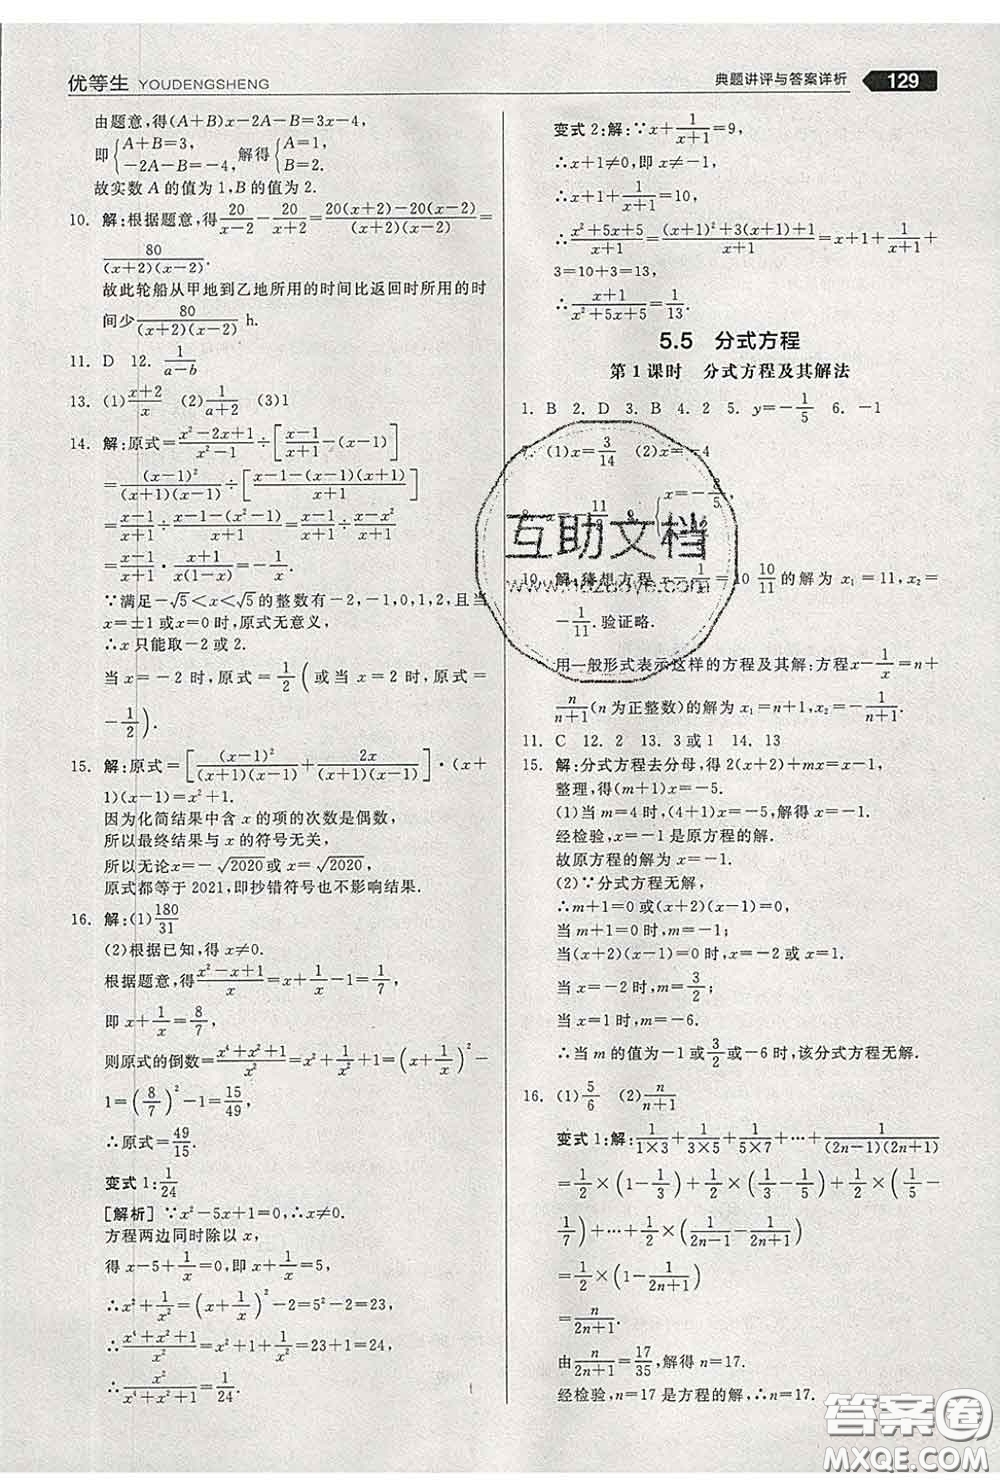 优等生 YOUDENGSHENG
典题讲评与答案详析 129
由题意，得(A+B)x-2A-B=3x-4，
即{A+B=3， -2A-B=-4， 解得{A=1， B=2.
故实数 A 的值为 1，B 的值为 2.
10. 解：根据题意，得20/(x-2)-20/(x+2)=[20(x+2)-20(x-2)]/[(x+2)(x-2)]=
80/[(x+2)(x-2)].
故此轮船从甲地到乙地所用的时间比返回时所用的时
间少80/[(x+2)(x-2)] h.
11. D 12. 1/(a-b)
13. (1)(x+2)/x (2)1/(a+2) (3)1
14. 解：原式=(x²-2x+1)/(x²-1)÷[(x-1)/(x+1)-(x-1)]
=(x-1)²/[(x+1)(x-1)]÷[(x-1-(x-1)(x+1))/(x+1)]
=(x-1)/(x+1)÷(x-1-(x²-1))/(x+1)=(x-1)/(x+1)÷(x-x²)/(x+1)
=(x-1)/(x+1)·(x+1)/[-x(x-1)]=-1/x.
∵满足-√5<x<√5的整数有-2，-1，0，1，2，且当
x=±1 或 0 时，原式无意义，
∴x 只能取-2 或 2.
当 x=-2 时，原式=1/2(或当 x=2 时，原式=
-1/2).
15. 解：原式=[(x-1)²/[(x+1)(x-1)]+2x/[(x+1)(x-1)]]·(x+
1)(x-1)=x²+1.
因为化简结果中含 x 的项的次数是偶数，
所以最终结果与 x 的符号无关，
所以无论x=-√2020或x=√2020，
原式都等于 2021，即抄错符号也不影响结果.
16. 解：(1)180/31
(2)根据已知，得 x≠0.
根据题意，得(x²-x+1)/x=x+1/x-1=1/7，
即 x+1/x=8/7，
则原式的倒数=(x⁴+x²+1)/x²=x²+1/x²+1=(x+1/x)²-
1=(8/7)²-1=15/49，
∴原式=49/15.
变式 1：1/24
[解析] ∵x²-5x+1=0，∴x≠0.
方程两边同时除以 x，
得 x-5+1/x=0，即 x+1/x=5，
∴x²+1/x²=(x+1/x)²-2=5²-2=23，
∴(x⁴+x²+1)/x²=x²+1/x²+1=23+1=24，
∴x²/(x⁴+x²+1)=1/24.
变式 2：解：∵x+1/(x+1)=9，
∴x+1≠0，即 x≠-1，
∴x+1+1/(x+1)=10，
∴(x²+5x+5)/(x+1)=[(x+1)²+3(x+1)+1]/(x+1)=x+1+1/(x+1)+
3=10+3=13，
∴(x+1)/(x²+5x+5)=1/13.
5.5 分式方程
第 1 课时 分式方程及其解法
1. B 2. D 3. B 4. 2 5. y=-1/5 6. -1
7. (1)x=3/14 (2)x=-4
互助文档
10. 解：猜想方程 x-1/x=10 10/11的解为 x₁=11，x₂=
-1/11.验证略.
用一般形式表示这样的方程及其解：方程x-1/x=n+
n/(n+1)(n 为正整数)的解为 x₁=n+1，x₂=-1/(n+1).
11. C 12. 2 13. 3 或 1 14. 13
15. 解：分式方程去分母，得 2(x+2)+mx=x-1，
整理，得(m+1)x=-5.
(1)当 m=4 时，(4+1)x=-5，解得 x=-1.
经检验，x=-1 是原方程的解.
故原方程的解为 x=-1.
(2)∵分式方程无解，
∴m+1=0 或(x+2)(x-1)=0，
当 m+1=0 时，m=-1；
当(x+2)(x-1)=0 时，x=-2 或 x=1.
当 x=-2 时，m=3/2；
当 x=1 时，m=-6.
∴当 m 的值为-1 或3/2或-6 时，该分式方程无解.
16. (1)5/6 (2)n/(n+1)
变式 1：解：1/(1×3)+1/(3×5)+1/(5×7)+…+1/[(2n-1)(2n+1)]
=1/2×(1-1/3)+1/2×(1/3-1/5)+1/2×(1/5-
1/7)+…+1/2×(1/(2n-1)-1/(2n+1))
=1/2×(1-1/(2n+1))
=n/(2n+1).
由n/(2n+1)=17/35，解得 n=17.
经检验，n=17 是方程的解，∴n=17.
答案圈
MXQE.COM